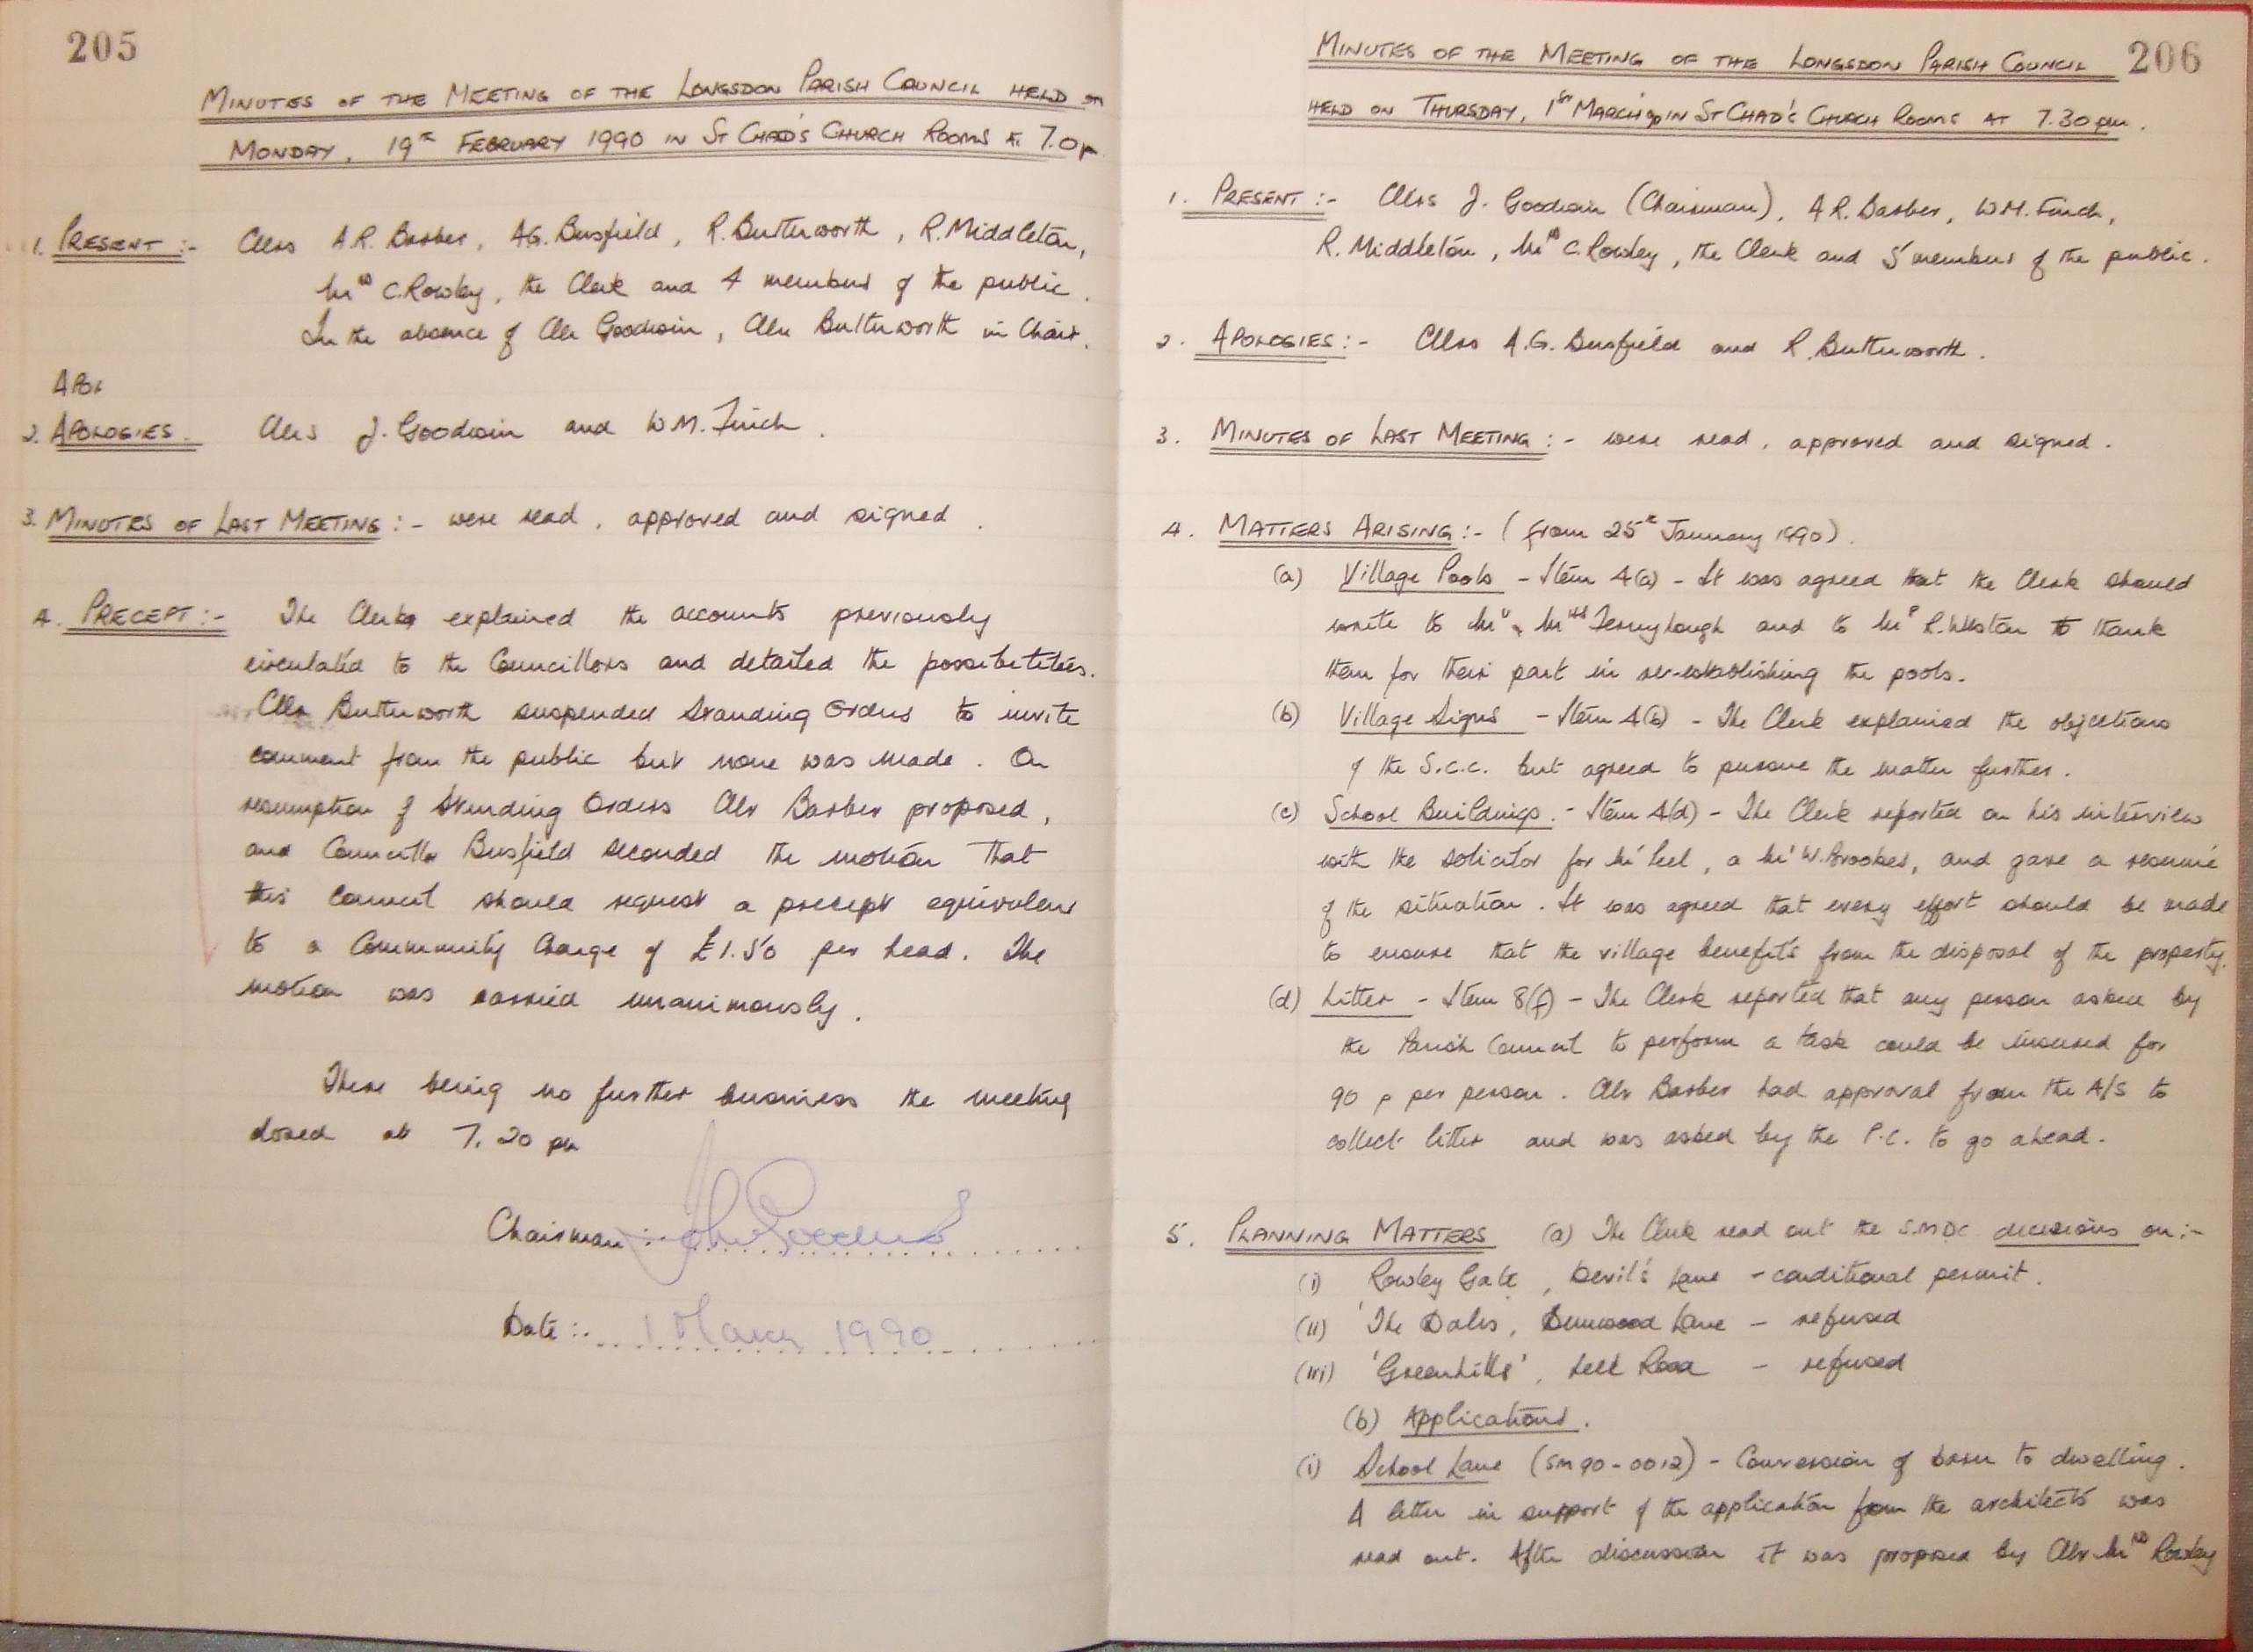 205
MINUTES OF THE MEETING OF THE LONGSDON PARISH COUNCIL HELD on
MONDAY, 19th FEBRUARY 1990 IN ST CHAD'S CHURCH ROOMS AT 7.0p
1. PRESENT :- Cllrs A.R. Barber, A.G. Busfield, R. Butterworth, R. Middleton,
Mrs C. Rowley, the Clerk and 4 members of the public.
In the absence of Cllr Goodwin, Cllr Butterworth in Chair.
APOL
2. APOLOGIES. Cllrs J. Goodwin and W.M. Finch.
3. MINUTES OF LAST MEETING :- were read, approved and signed.
4. PRECEPT :- The Clerk explained the accounts previously
circulated to the Councillors and detailed the possibilities.
Cllr Butterworth suspended Standing Orders to invite
comment from the public but none was made. On
resumption of Standing Orders Cllr Barber proposed,
and Councillor Busfield seconded the motion that
this Council should request a precept equivalent
to a Community Charge of £1.50 per head. The
motion was carried unanimously.
There being no further business the meeting
closed at 7.20 pm
Chairman :- John Goodwin
Date :- 1 March 1990
206
MINUTES OF THE MEETING OF THE LONGSDON PARISH COUNCIL
HELD ON THURSDAY, 1st MARCH 90 IN ST CHAD'S CHURCH ROOMS AT 7.30 pm.
1. PRESENT :- Cllrs J. Goodwin (Chairman), A.R. Barber, W.M. Finch,
R. Middleton, Mrs C. Rowley, the Clerk and 5 members of the public.
2. APOLOGIES :- Cllrs A.G. Busfield and R. Butterworth.
3. MINUTES OF LAST MEETING :- were read, approved and signed.
4. MATTERS ARISING :- (from 25th January 1990).
(a) Village Pools - Item 4(a) - It was agreed that the Clerk should
write to Mr & Mrs Ferneyhough and to Mr R. Weston to thank
them for their part in re-establishing the pools.
(b) Village Signs - Item 4(b) - The Clerk explained the objections
of the S.C.C. but agreed to pursue the matter further.
(c) School Buildings. - Item 4(d) - The Clerk reported on his interview
with the solicitor for Mr Peel, a Mr W. Brookes, and gave a resumé
of the situation. It was agreed that every effort should be made
to ensure that the village benefits from the disposal of the property.
(d) Litter - Item 8(f) - The Clerk reported that any person asked by
the Parish Council to perform a task could be insured for
90 p per person. Cllr Barber had approval from the A/S to
collect litter and was asked by the P.C. to go ahead.
5. PLANNING MATTERS (a) The Clerk read out the S.M.D.C. decisions on :-
(i) Rowley Gate, Devil's Lane - conditional permit.
(ii) 'The Dales, Dunwood Lane - refused
(iii) 'Greenhills', Leek Road - refused
(b) Applications.
(i) School Lane (SM 90-0012) - Conversion of barn to dwelling.
A letter in support of the application from the architects was
read out. After discussion it was proposed by Cllr Mrs Rowley